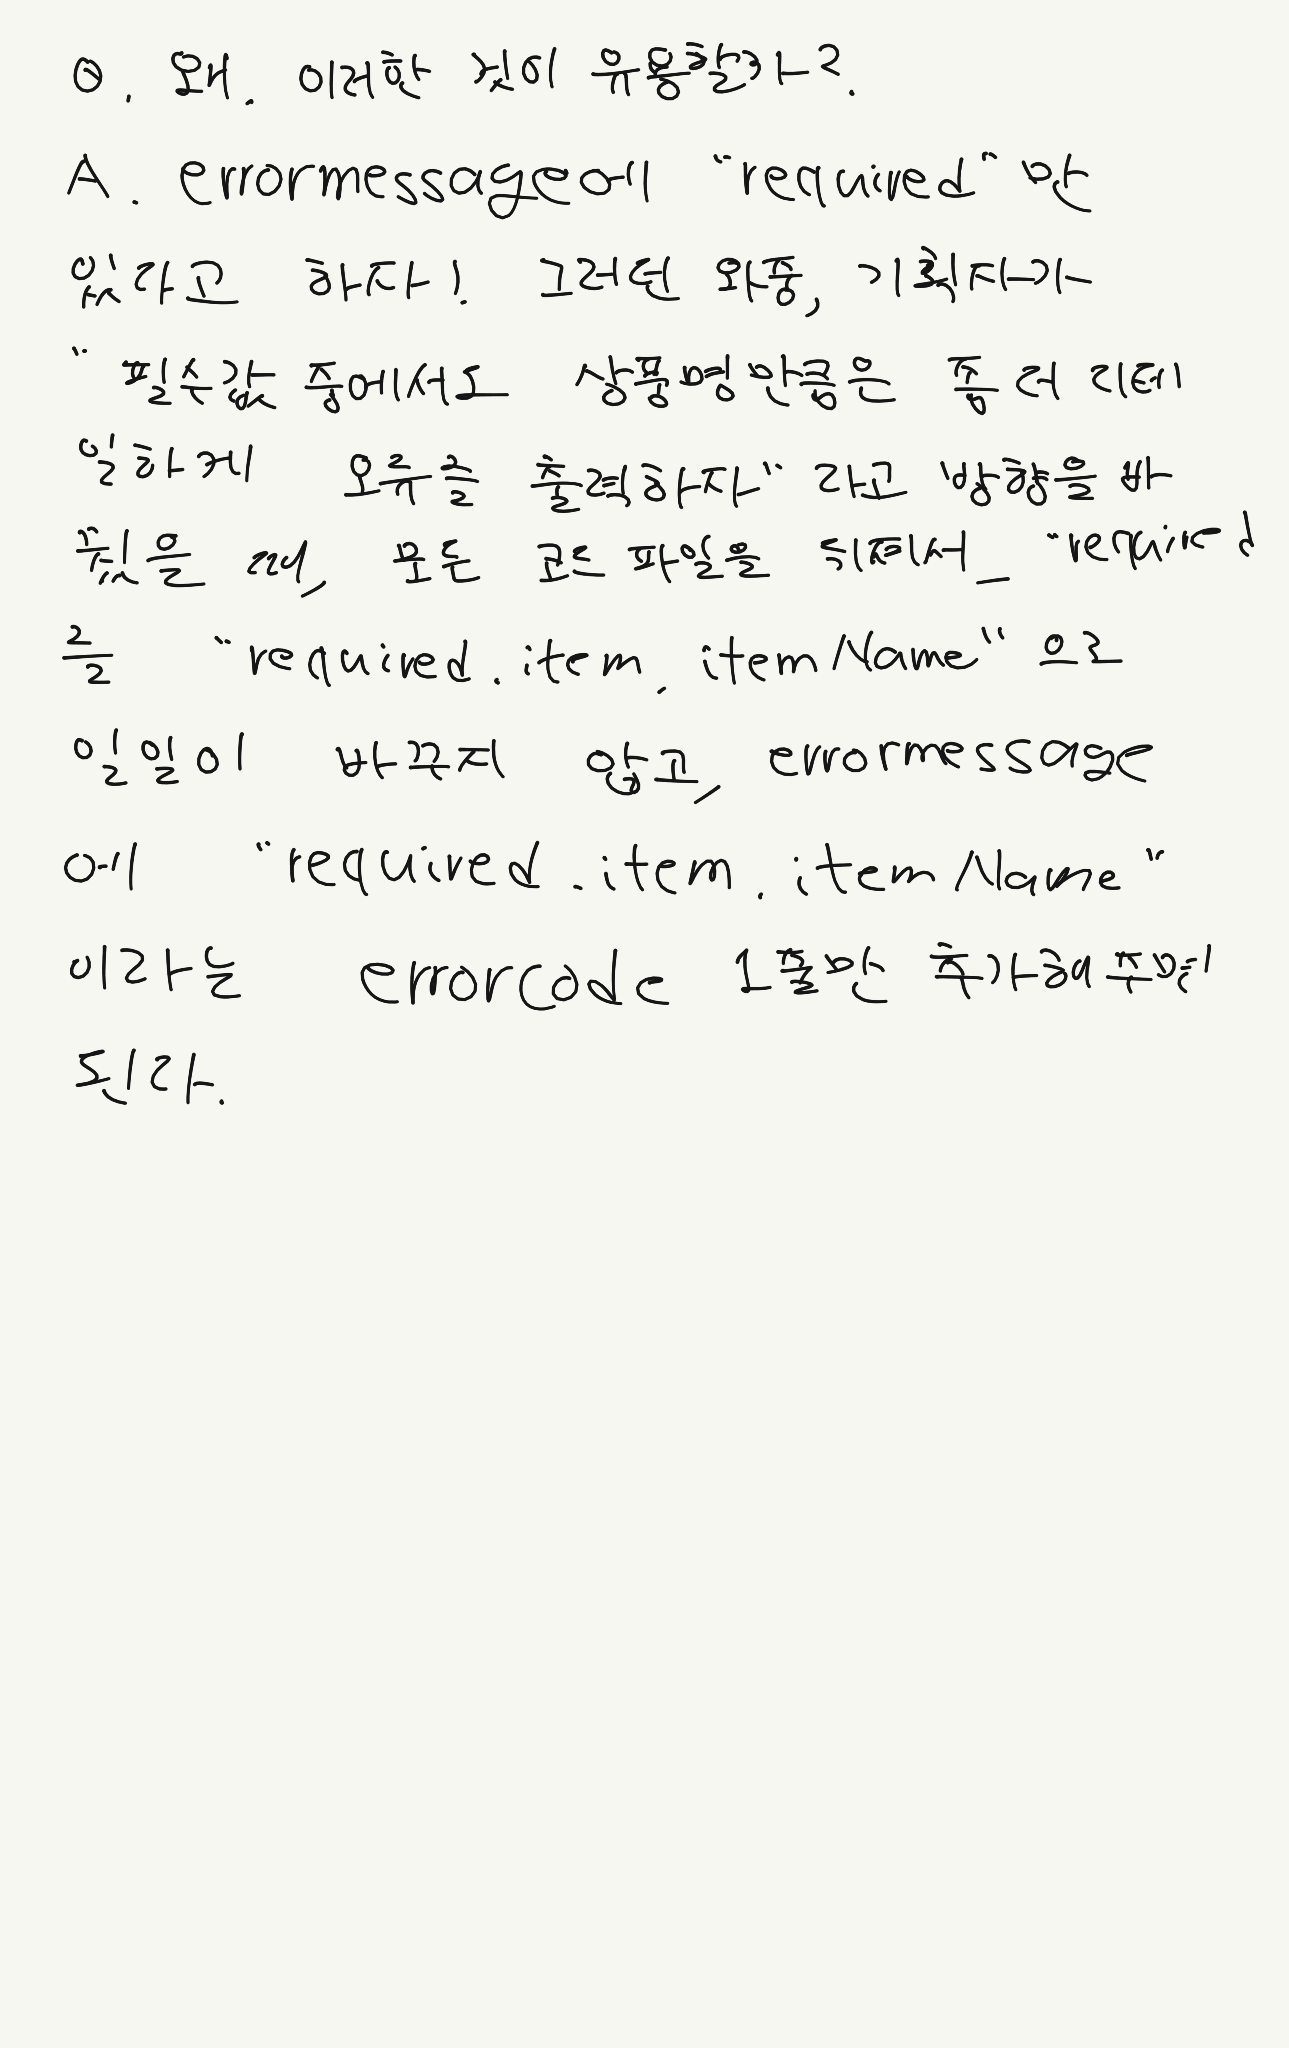 Q. 왜. 이러한 것이 유용할까?.
A. errormessage에 "required"만
있다고 하자!. 그러던 와중, 기획자가
"필수값 중에서도 상품명만큼은 좀 더 디테
일하게 오류를 출력하자"라고 방향을 바
꿨을 때, 모든 코드 파일을 뒤져서_ "required
를 "required.item.itemName"으로
일일이 바꾸지 않고, errormessage
에 "required.item.itemName"
이라는 errorcode 1줄만 추가해주면
된다.